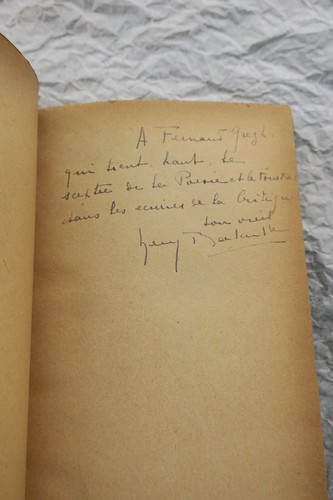 A Fernand Gregh
qui tient, haut, le
sceptre de la Poésie et le
dans les écuries de la Critique
son vieil
Henry